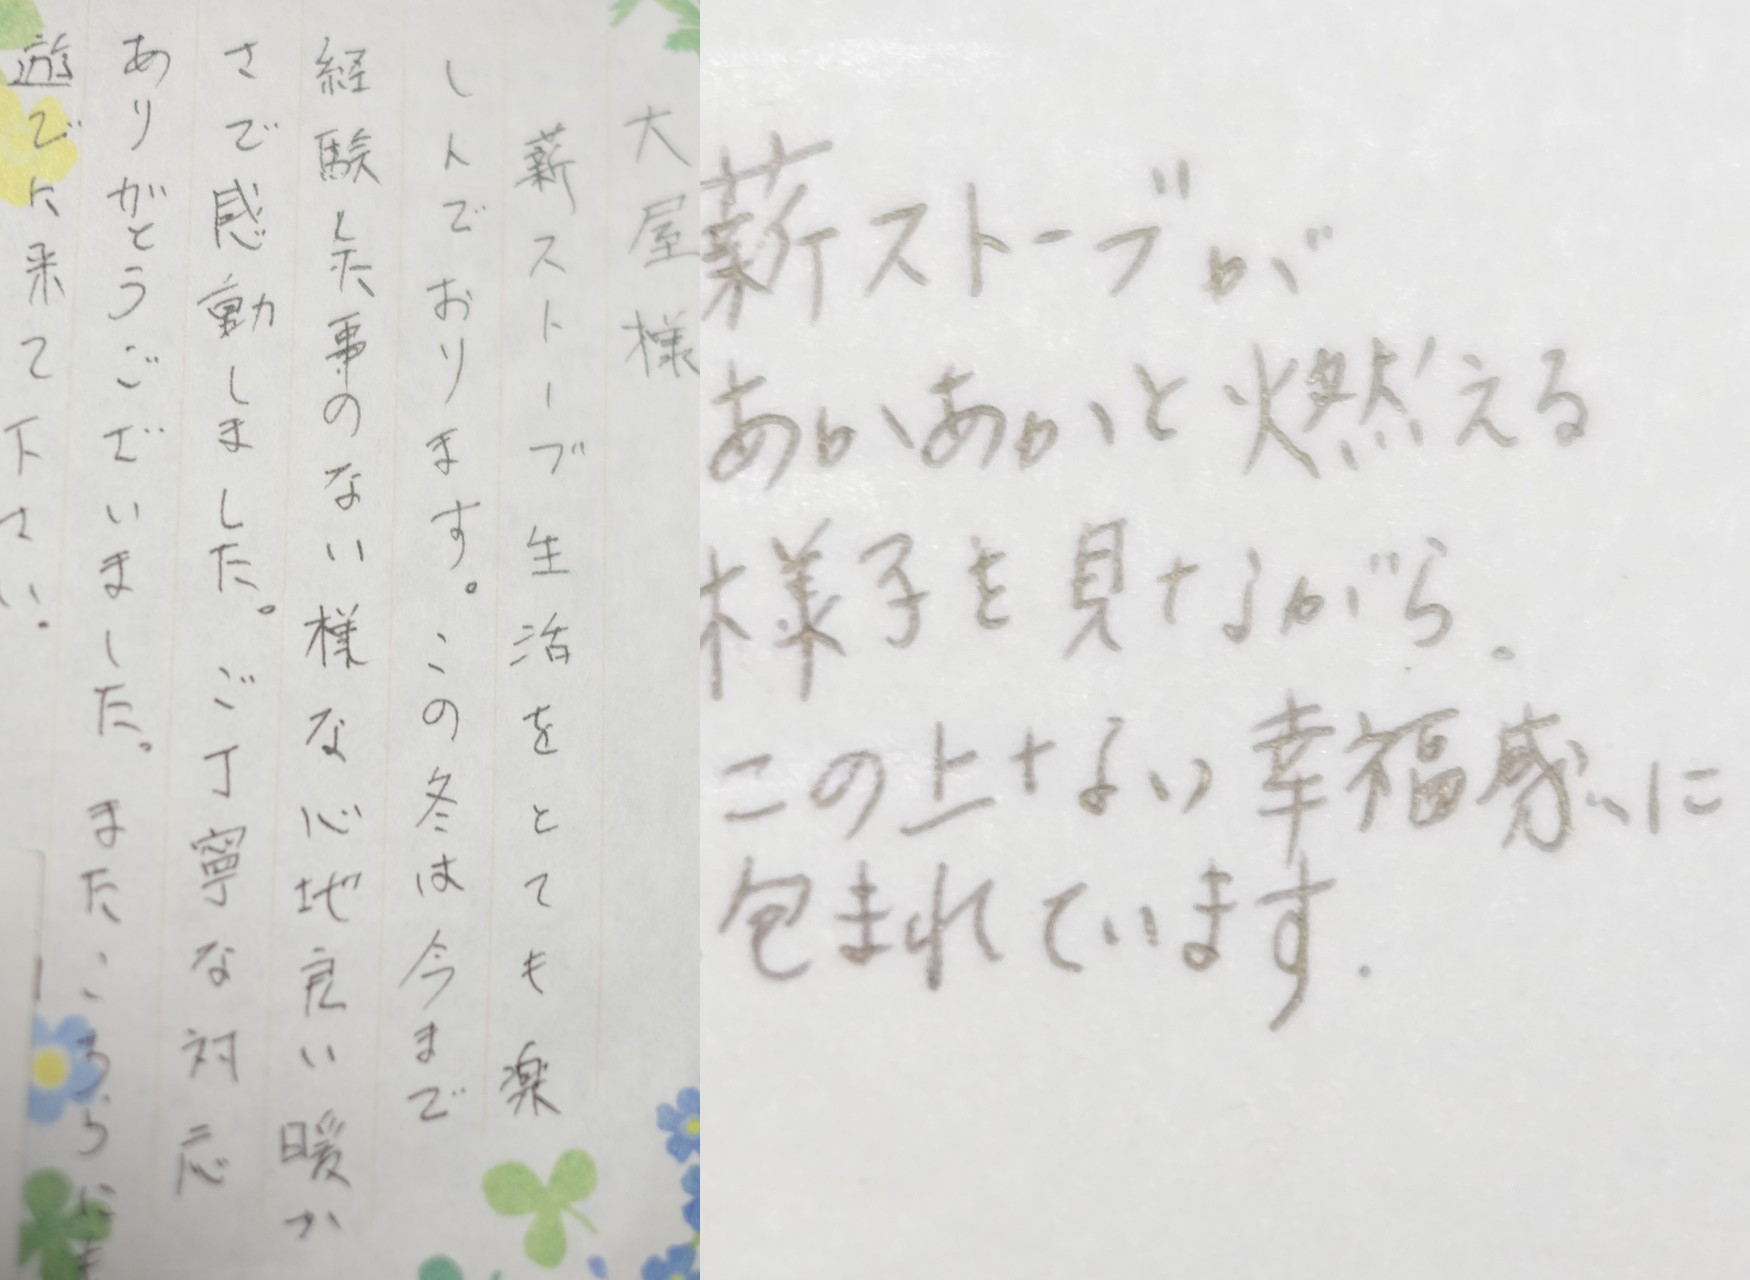 大屋様
薪ストーブ生活をとても楽
しんでおります。この冬は今まで
経験した事のない様な心地良い暖か
さで感動しました。ご丁寧な対応
ありがとうございました。またこちらにも
遊びに来て下さい。
薪ストーブが
あかあかと燃える
様子を見ながら.
この上ない幸福感に
包まれています.